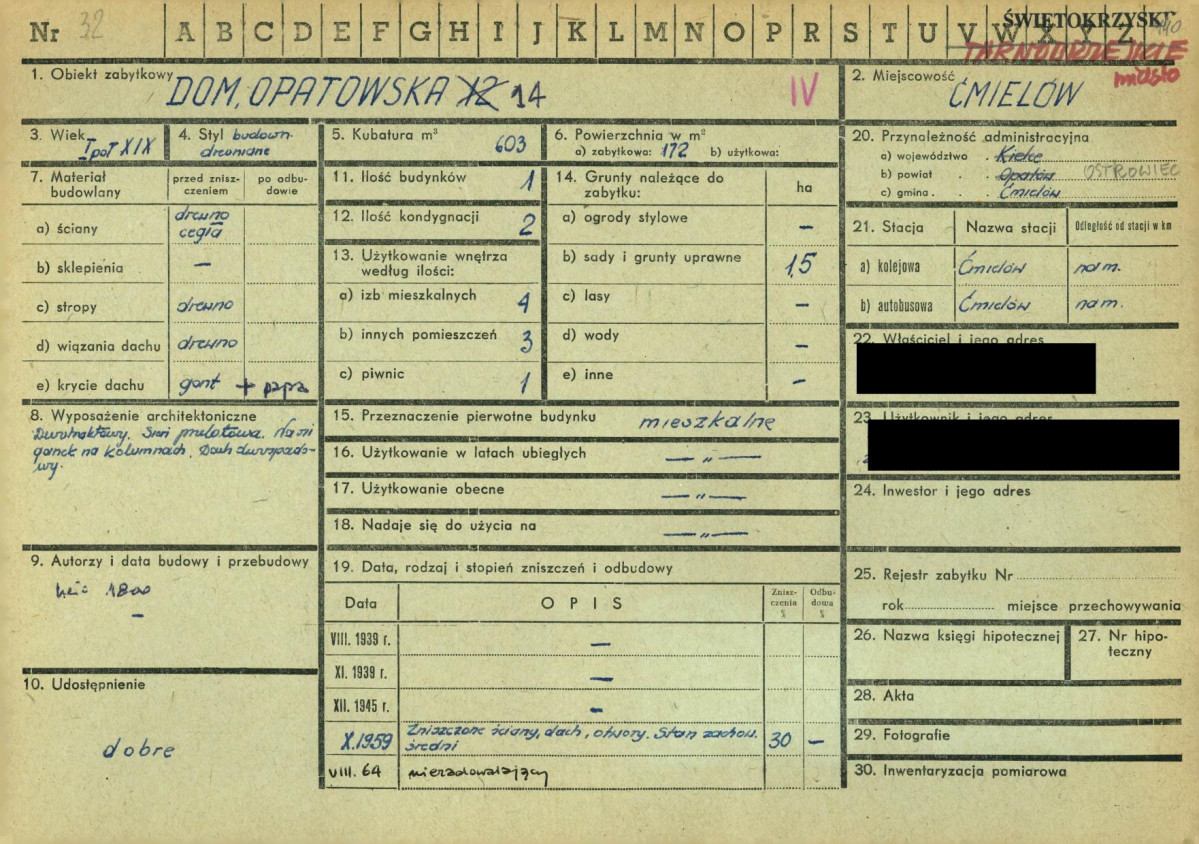 Nr 32 A B C D E F G H I J K L M N O P R S T U V W X Y Z
ŚWIĘTOKRZYSKI
TARNOBRZESKIE
miasto
1. Obiekt zabytkowy DOM, OPATOWSKA 12 14 IV
2. Miejscowość ĆMIELÓW
3. Wiek I poł XIX
4. Styl budown. drewniane
5. Kubatura m³ 603
6. Powierzchnia w m²
a) zabytkowa: 172 b) użytkowa:
7. Materiał budowlany
przed zniszczeniem
po odbudowie
a) ściany drewno cegła
b) sklepienia —
c) stropy drewno
d) wiązania dachu drewno
e) krycie dachu gont + papa
8. Wyposażenie architektoniczne
Dwutraktowy. Sień przelotowa. Na osi
ganek na kolumnach. Dach dwuspado-
wy.
9. Autorzy i data budowy i przebudowy
1800
—
10. Udostępnienie
dobre
11. Ilość budynków 1
12. Ilość kondygnacji 2
13. Użytkowanie wnętrza
według ilości:
a) izb mieszkalnych 4
b) innych pomieszczeń 3
c) piwnic 1
14. Grunty należące do
zabytku: ha
a) ogrody stylowe —
b) sady i grunty uprawne 1,5
c) lasy —
d) wody —
e) inne —
15. Przeznaczenie pierwotne budynku mieszkalne
16. Użytkowanie w latach ubiegłych — „ —
17. Użytkowanie obecne — „ —
18. Nadaje się do użycia na — „ —
19. Data, rodzaj i stopień zniszczeń i odbudowy
Data OPIS Zniszczenia % Odbudowa %
VIII. 1939 r. —
XI. 1939 r. —
XII. 1945 r. —
X.1959 Zniszczone ściany, dach, otwory. Stan zachow. średni 30 —
VIII. 64 niezadowalający
20. Przynależność administracyjna
a) województwo . Kielce
b) powiat . . Opatów OSTROWIEC
c) gmina . . Ćmielów
21. Stacja Nazwa stacji Odległość od stacji w km
a) kolejowa Ćmielów na m.
b) autobusowa Ćmielów na m.
22. Właściciel i jego adres
23. Użytkownik i jego adres
24. Inwestor i jego adres
25. Rejestr zabytku Nr
rok miejsce przechowywania
26. Nazwa księgi hipotecznej
27. Nr hipo-
teczny
28. Akta
29. Fotografie
30. Inwentaryzacja pomiarowa